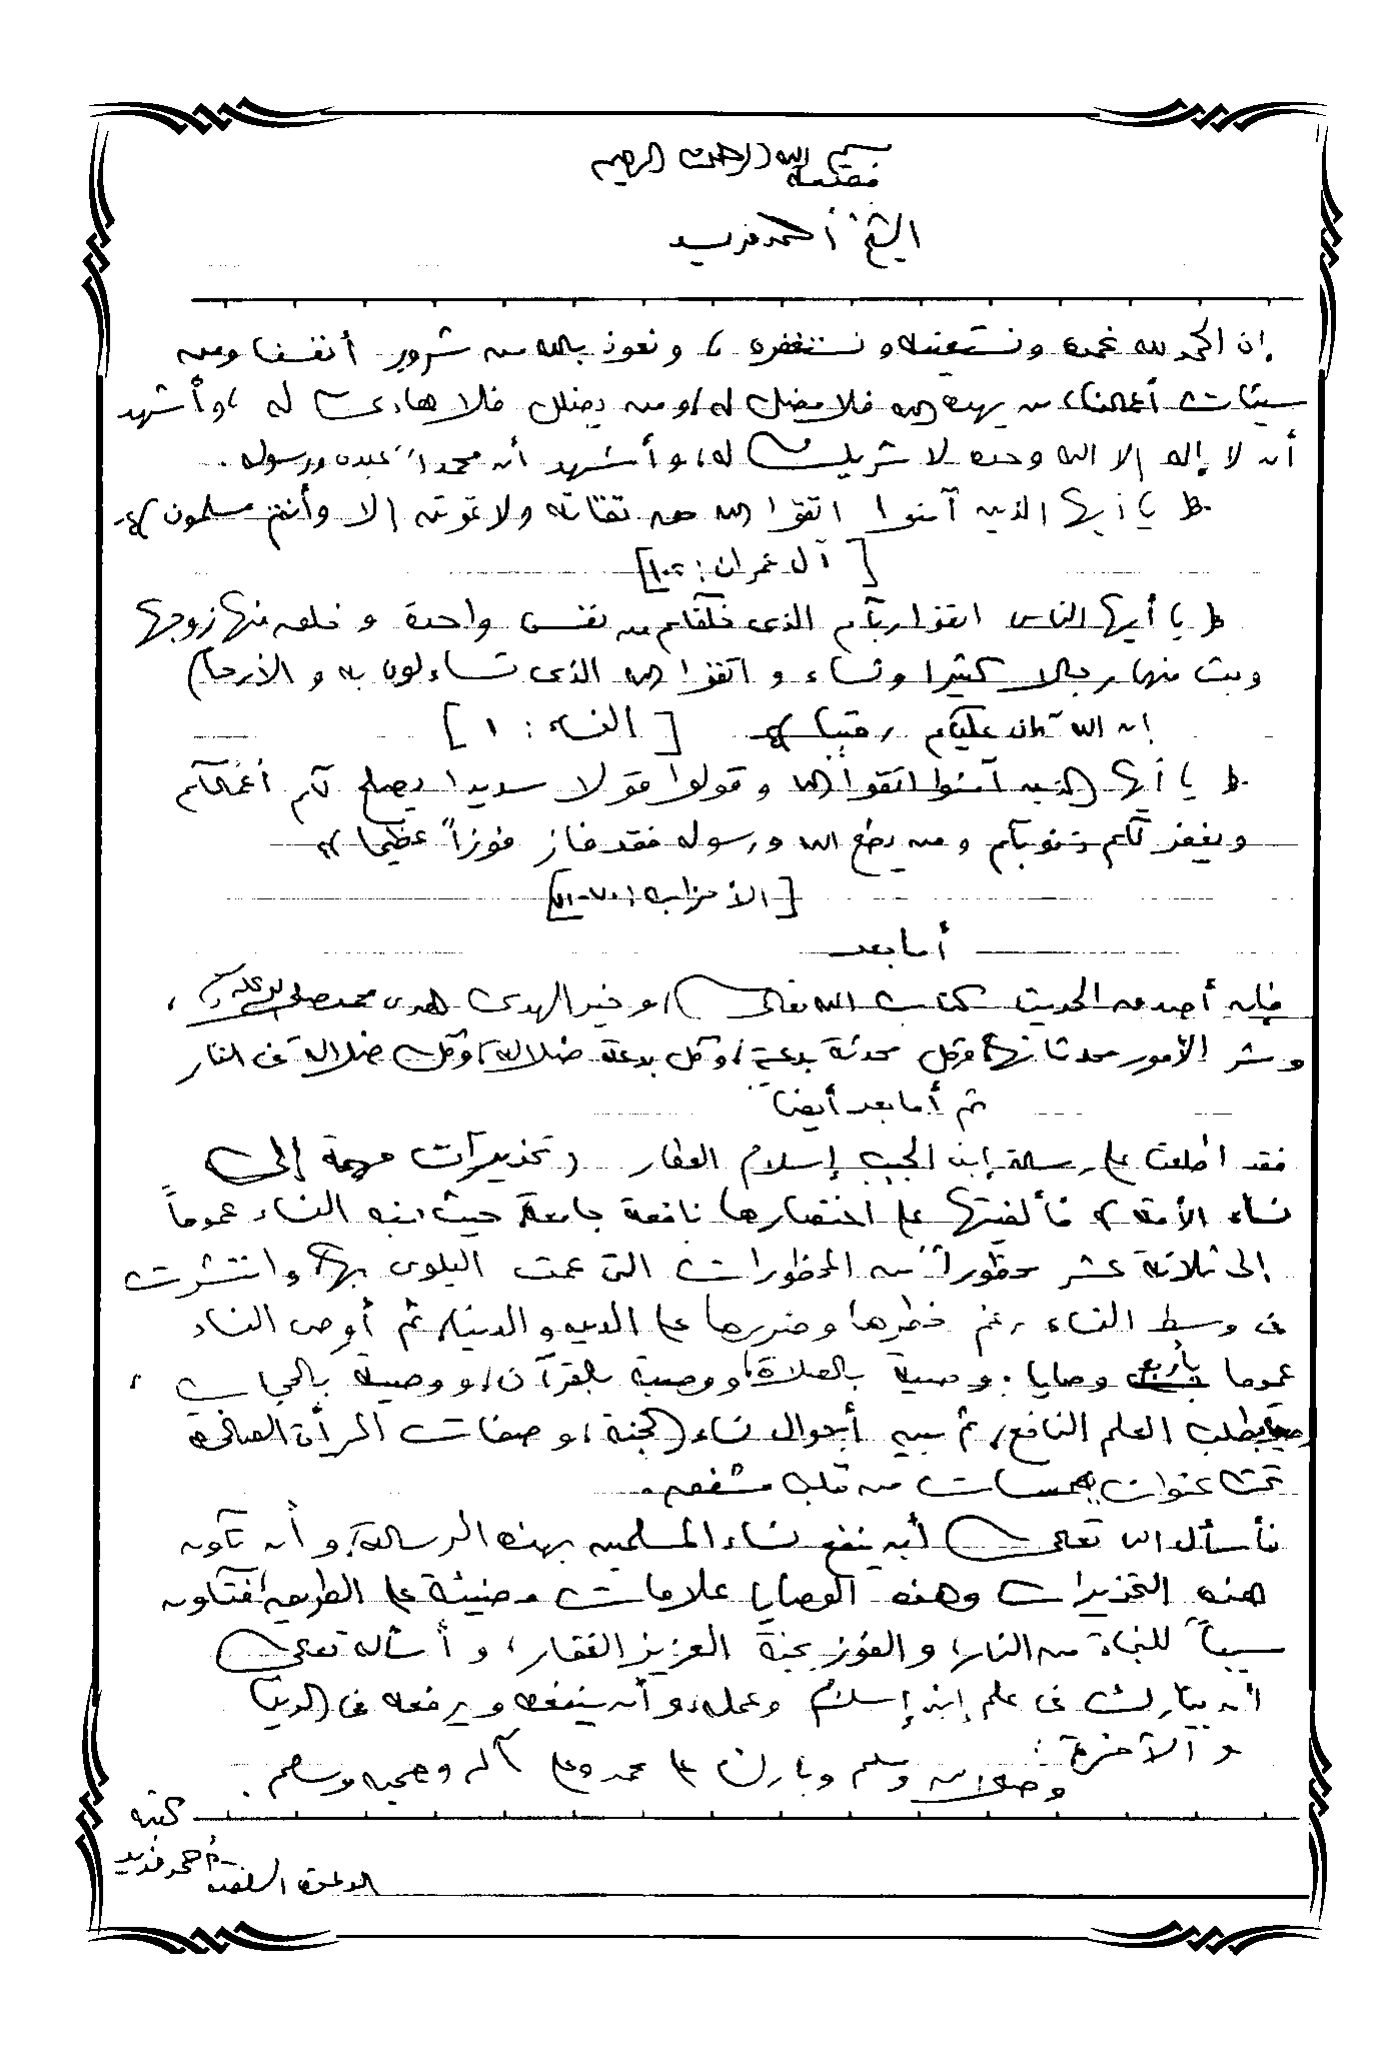 بسم الله الرحمن الرحيم
مقدمة
الشيخ أحمد فريد
إن الحمد لله نحمده ونستعينه ونستغفره ، ونعوذ بالله من شرور أنفسنا ومن
سيئات أعمالنا، من يهده الله فلا مضل له، ومن يضلل فلا هادى له ، وأشهد
أن لا إله إلا الله وحده لا شريك له، وأشهد أن محمداً عبده ورسوله .
﴿ يا أيها الذين آمنوا اتقوا الله حق تقاته ولا تموتن إلا وأنتم مسلمون ﴾
[ آل عمران : ١٠٢]
﴿ يا أيها الناس اتقوا ربكم الذى خلقكم من نفس واحدة وخلق منها زوجها
وبث منهما رجالا كثيرا ونساء واتقوا الله الذى تساءلون به والأرحام
إن الله كان عليكم رقيبا ﴾ [ النساء : ١ ]
﴿ يا أيها الذين آمنوا اتقوا الله وقولوا قولا سديدا يصلح لكم أعمالكم
ويغفر لكم ذنوبكم ومن يطع الله ورسوله فقد فاز فوزاً عظيما ﴾
[ الأحزاب : ٧٠-٧١]
أما بعد
فإن أصدق الحديث كتاب الله تعالى، وخير الهدى هدى محمد صلى الله عليه وسلم ،
وشر الأمور محدثاتها، وكل محدثة بدعة، وكل بدعة ضلالة، وكل ضلالة فى النار
ثم أما بعد أيضاً
فقد اطلعت على رسالة إبن الحبيب إسلام العطار ( تحذيرات مهمة إلى
نساء الأمة ) فألفيتها على اختصارها نافعة جامعة، حيث نبه النساء عموماً
إلى ثلاثة عشر محظوراً من المحظورات التى عمت البلوى بها، وانتشرت
فى وسط النساء رغم خطرها وضررها على الدين والدنيا، ثم أوصى النساء
عموما بأربع وصايا . وصية بالصلاة، ووصية بالقرآن، ووصية بالحجاب ،
ووصية بطلب العلم النافع، ثم بين أحوال نساء الجنة، وصفات المرأة الصالحة
تحت عنوان همسات من قلب مشفق .
فأسأل الله تعالى أن ينفع نساء المسلمين بهذه الرسالة، وأن تكون
هذه التحذيرات وهذه الوصايا علامات مضيئة على الطريق، فتكون
سبباً للنجاة من النار، والفوز بجنة العزيز الغفار ، وأسأله تعالى
أن يبارك فى علم إبن إسلام وعمله، وأن ينفعه ويرفعه فى الدنيا
والآخرة :
وصلى الله وسلم وبارك على محمد وعلى آله وصحبه وسلم .
كتبه
أحمد فريد
الدعوة السلفية